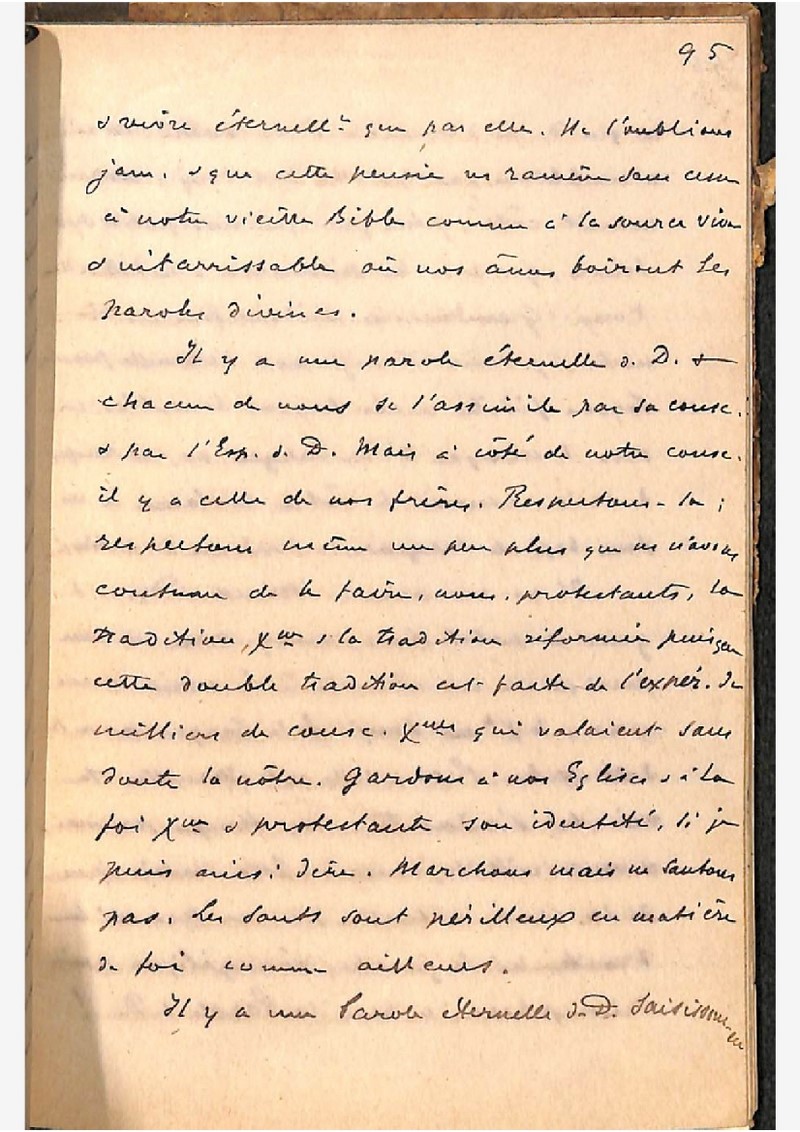 95
& vivre éternellt que par elle. Ne l'oublions
jam. & que cette pensée ns ramène sans cesse
à notre vieille Bible comme à la source vive
& intarissable où nos âmes boiront les
paroles divines.
Il y a une parole éternelle d. D. &
chacun de nous se l'assimile par sa consc.
& par l'Esp. d. D. Mais à côté de notre consc.
il y a celle de nos frères. Respectons-la ;
respectons même un peu plus que ns n'avons
coutume de le faire, nous, protestants, la
tradition Xne & la tradition réformée puisque
cette double tradition est faite de l'expér. de
milliers de consc. Xnnes qui valaient sans
doute la nôtre. Gardons à nos Eglises & à la
foi Xne & protestante son identité, si je
puis ainsi dire. Marchons mais ne sautons
pas. Les sauts sont périlleux en matière
de foi comme ailleurs.
Il y a une Parole éternelle d. D. Saisissons-en